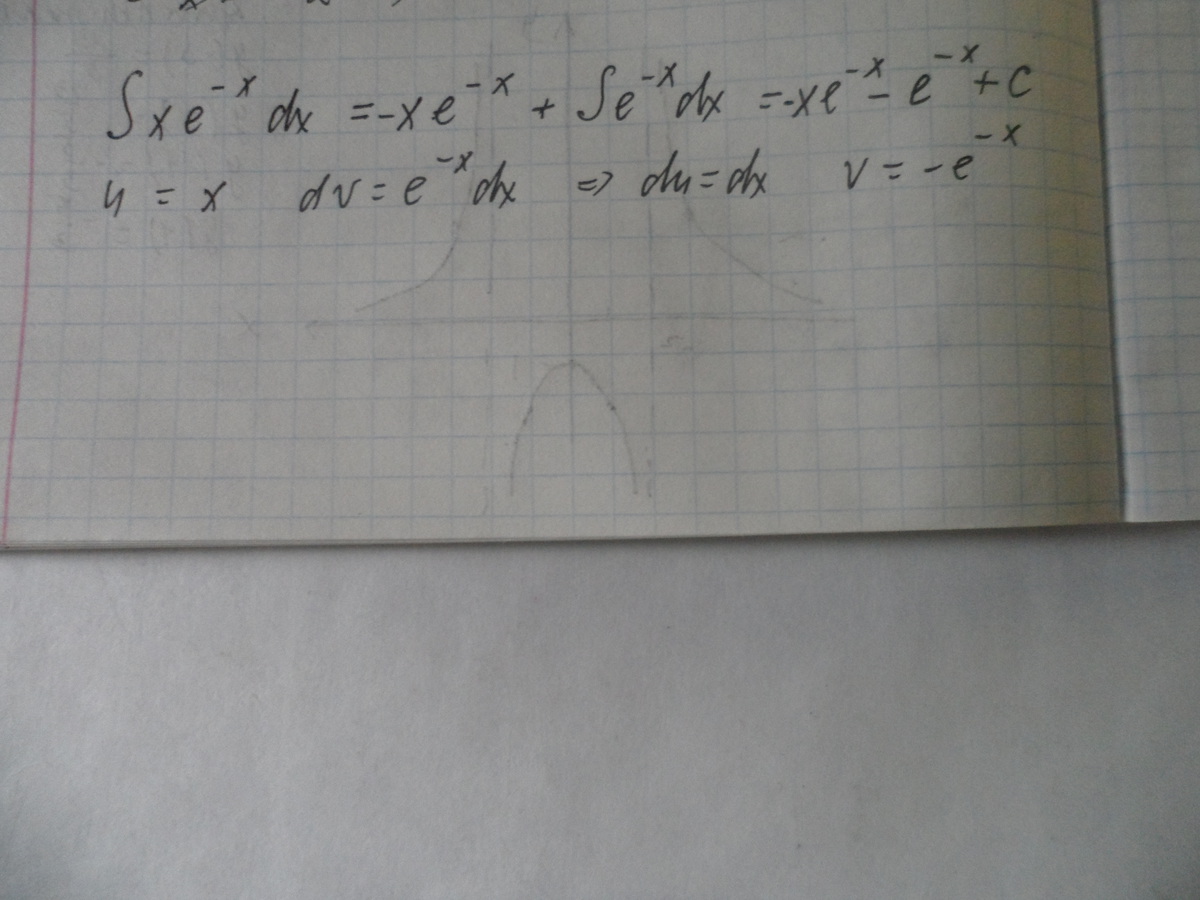 ∫xe^{-x} dx = -xe^{-x} + ∫e^{-x}dx = -xe^{-x} - e^{-x} + C
u = x dv = e^{-x}dx ⇒ du = dx v = -e^{-x}